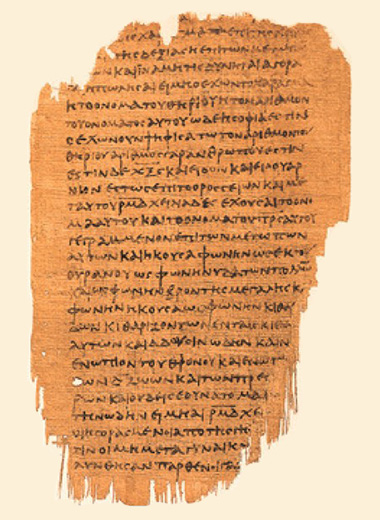 ΤΗϹΔΕΞΙΑϹΗΕΠΙΤΩΝΜΕ
ΚΑΙΙΝΑΜΗΤΙϹΔΥΝΗΤΑΙΑΓΟΡΑ
ΑΙΕΙΜΗΟΕΧΩΝΤΟΧΑΡΑΓΜΑ
ΗΤΟΟΝΟΜΑΤΟΥΘΗΡΙΟΥΗΤΟΝΑΡΙΘΜΟΝ
ΤΟΥΟΝΟΜΑΤΟϹΑΥΤΟΥΩΔΕΗϹΟΦΙΑΕϹΤΙΝ
ΟΕΧΩΝΟΥΝΨΗΦΙϹΑΤΩΤΟΝΑΡΙΘΜΟΝΤΟΥ
ΘΗΡΙΟΥΑΡΙΘΜΟϹΓΑΡΑΝΘΡΩΠΟΥΕϹΤΙΝ
ΕϹΤΙΝΔΕΧΞϚΚΑΙΕΙΔΟΝΚΑΙΕΙΔΟΥΑΡ
ΝΙΟΝΕϹΤΩϹΕΠΙΤΟΟΡΟϹϹΕΙΩΝΚΑΙΜΕ
ΤΑΥΤΟΥΡΜΔΧΕΙΛΙΑΔΕϹΕΧΟΥϹΑΙΤΟΟΝΟ
ΜΑΑΥΤΟΥΚΑΙΤΟΟΝΟΜΑΤΟΥΠΡϹΑΥΤΟΥ
ΓΕΓΡΑΜΜΕΝΟΝΕΠΙΤΩΝΜΕΤΩΠΩΝ
ΑΥΤΩΝΚΑΙΗΚΟΥϹΑΦΩΝΗΝΩϹΕΚΤΟΥ
ΟΥΡΑΝΟΥΩϹΦΩΝΗΝΥΔΑΤΩΝΠΟΛΛΩΝ
ΚΑΙΩϹΦΩΝΗΝΒΡΟΝΤΗϹΜΕΓΑΛΗϹΚ
ΦΩΝΗΝΗΚΟΥϹΑΩϹΦΩΝΗΝΚΙΘΑΡ
ΔΩΝΚΙΘΑΡΙΖΟΝΤΩΝΕΝΤΑΙϹΚΙΘ
ΑΥΤΩΝΚΑΙΑΔΟΥϹΙΝΩΔΗΝΚΑΙΝ
ΕΝΩΠΙΟΝΤΟΥΘΡΟΝΟΥΚΑΙΕΝΩΠ
ΩΝΔΖΩΩΝΚΑΙΤΩΝΠΡΕϹ
ΡΩΝΚΑΙΟΥΔΕΙϹΕΔΥΝΑΤΟΜΑΘ
ΤΗΝΩΔΗΝΕΙΜΗΑΙΡΜΔΧΕΙ
ΟΙΗΓΟΡΑϹΜΕΝΟΙΑΠΟΤΗϹΓΗϹ
ΤΙΝΟΙΜΗΜΕΤΑΓΥΝΑΙΚ
ΛΥΝΘΗϹΑΝΠΑΡΘΕΝΟΙΓΑ